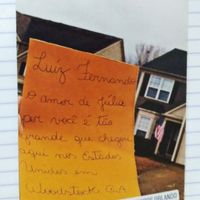 Luíz Fernando
O amor de Júlia
por você é tão
grande que chegou
aqui nos Estados
Unidos em
Woodstock GA
ORLANDO